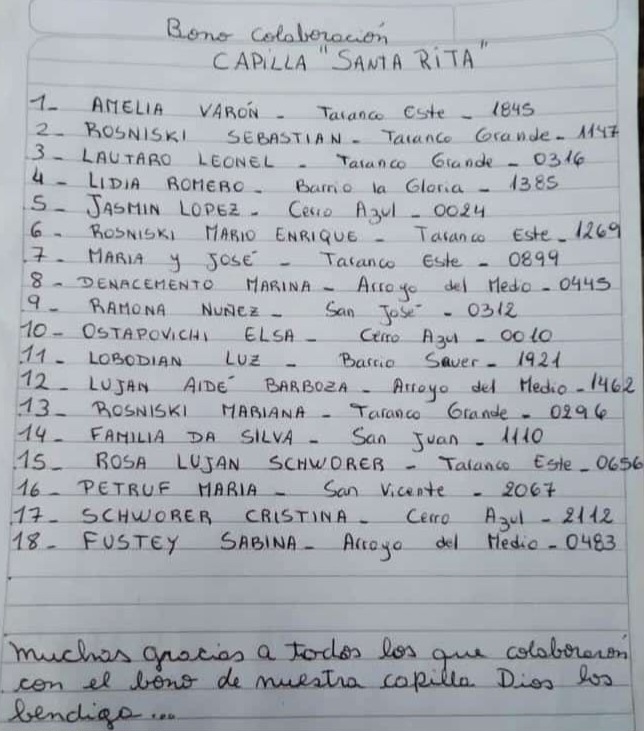 Bono Colaboración
CAPILLA "SANTA RITA"
1- AMELIA VARÓN - Taranco Este - 1845
2- ROSNISKI SEBASTIAN - Taranco Grande - 1147
3- LAUTARO LEONEL - Taranco Grande - 0316
4- LIDIA ROMERO - Barrio la Gloria - 1385
5- JASMIN LOPEZ - Cerro Azul - 0024
6- ROSNISKI MARIO ENRIQUE - Taranco Este - 1269
7- MARIA y JOSÉ - Taranco Este - 0899
8- DENACEMENTO MARINA - Arroyo del Medio - 0445
9- RAMONA NUÑEZ - San José - 0312
10- OSTAPOVICHI ELSA - Cerro Azul - 0010
11- LOBODIAN LUZ - Barrio Sauer - 1921
12- LUJAN AIDÉ BARBOZA - Arroyo del Medio - 1462
13- ROSNISKI MARIANA - Taranco Grande - 0296
14- FAMILIA DA SILVA - San Juan - 1110
15- ROSA LUJAN SCHWORER - Taranco Este - 0656
16- PETRUF MARIA - San Vicente - 2067
17- SCHWORER CRISTINA - Cerro Azul - 2112
18- FUSTEY SABINA - Arroyo del Medio - 0483
Muchas gracias a todos los que colaboraron
con el bono de nuestra capilla Dios los
bendiga...